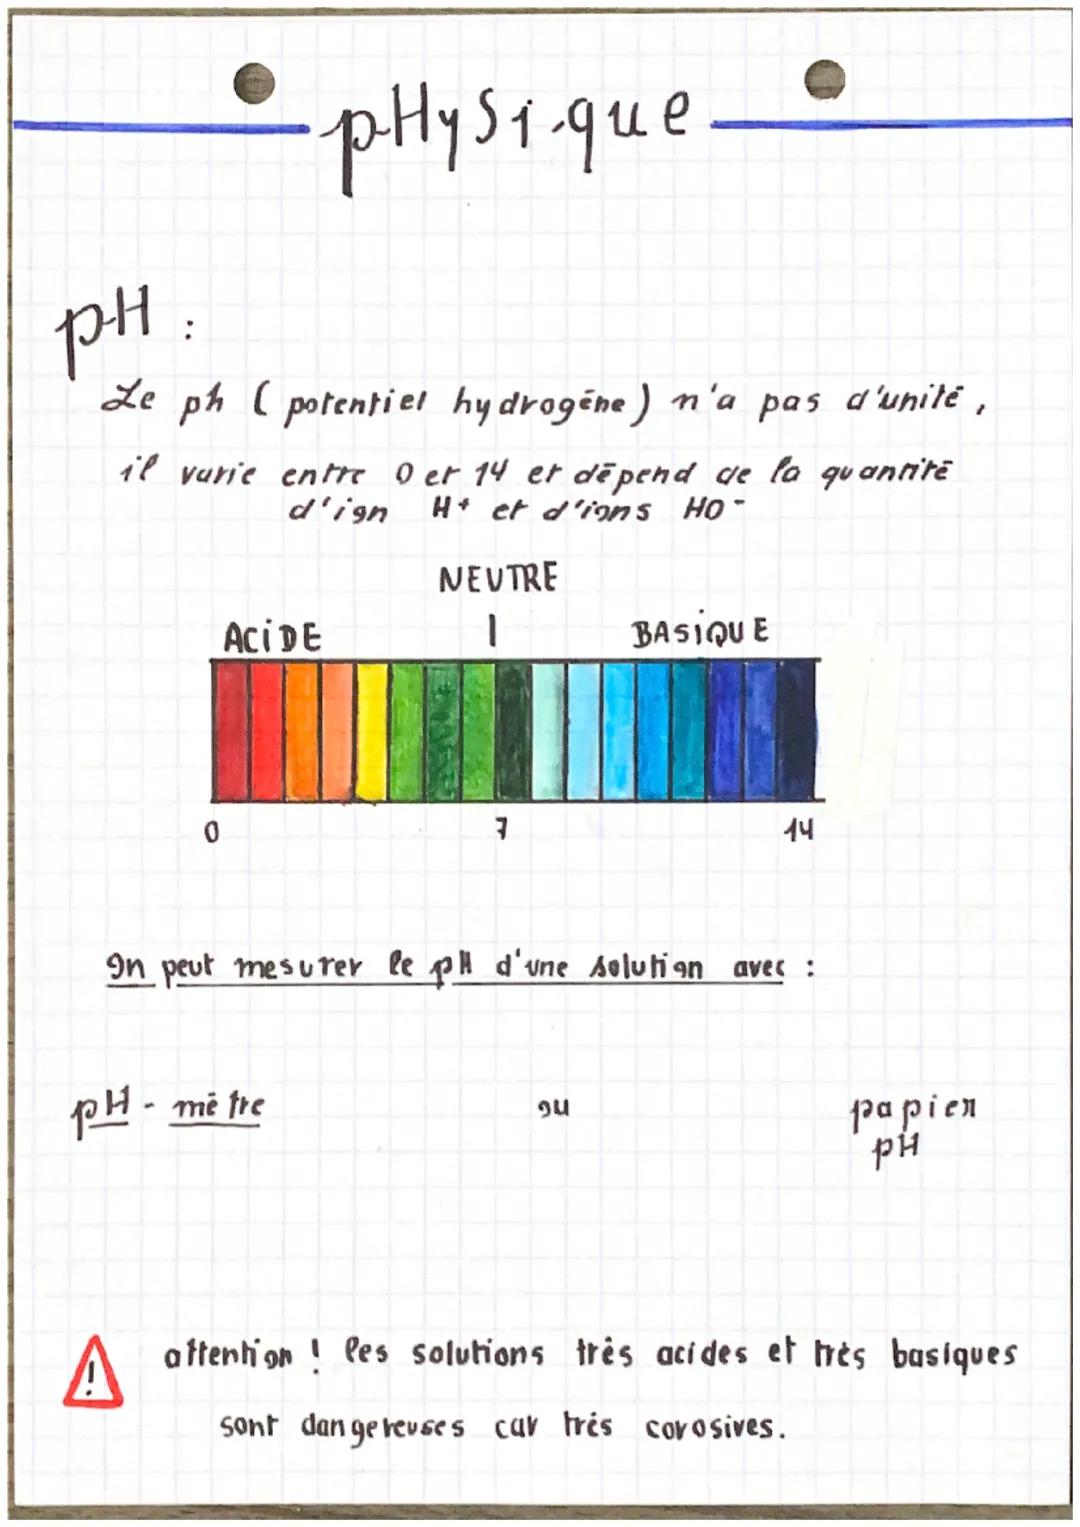 pHysique
pH :
Le ph ( potentiel hydrogēne) n'a pas d'unitē,
il varie entre 0 et 14 et dēpend de la quantitē
d'ion H+ et d'ions HO-
NEUTRE
ACiDE BASiQUE
0 7 14
On peut mesurer le pH d'une solution avec :
pH - mētre ou papier
pH
! attention ! les solutions très acides et très basiques
sont dangereuses car très corosives.